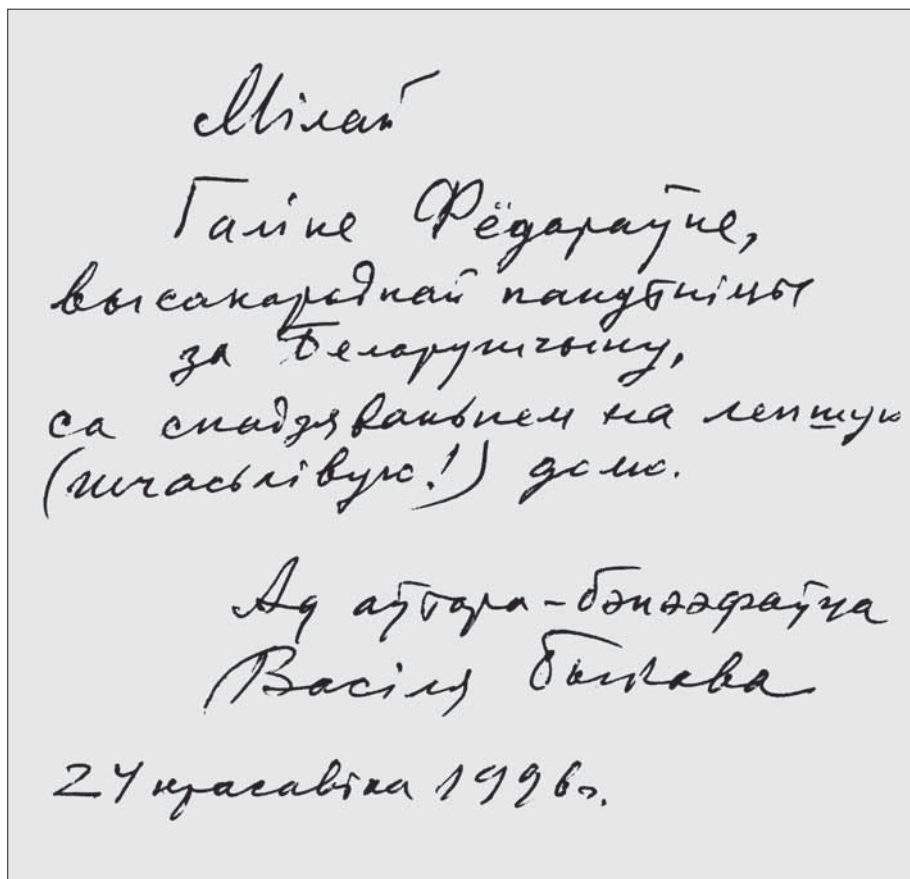 Мілай
Галіне Фёдараўне,
высакароднай пакутніцы
за Беларушчыну,
са спадзяваньнем на лепшую
(шчасьлівую!) долю.
Ад аўтара-бэнээфаўца
Васіля Быкава
24 красавіка 1996 г.